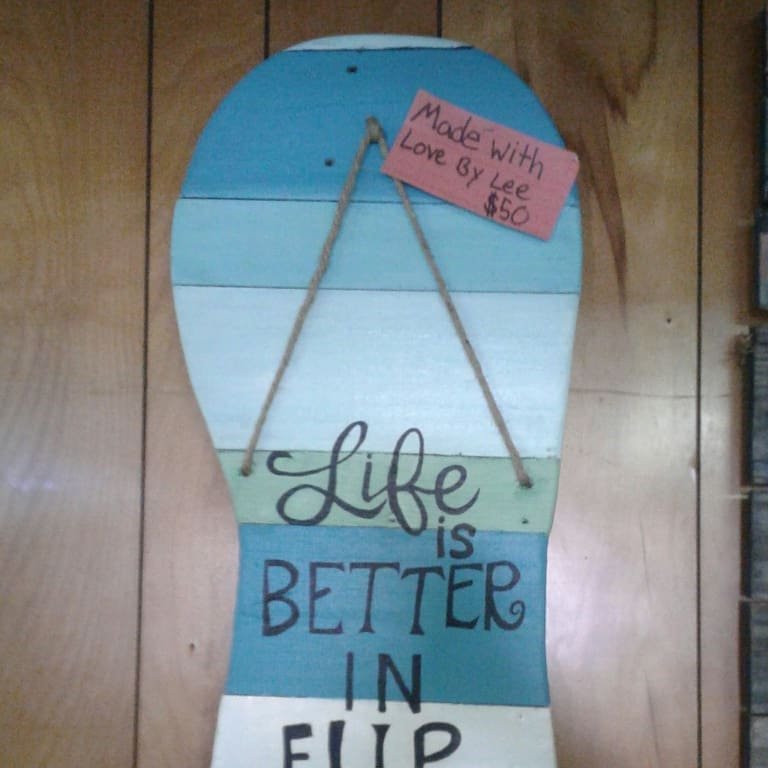 Made With
Love By Lee
$50
Life
is
BETTER
IN
FLIP